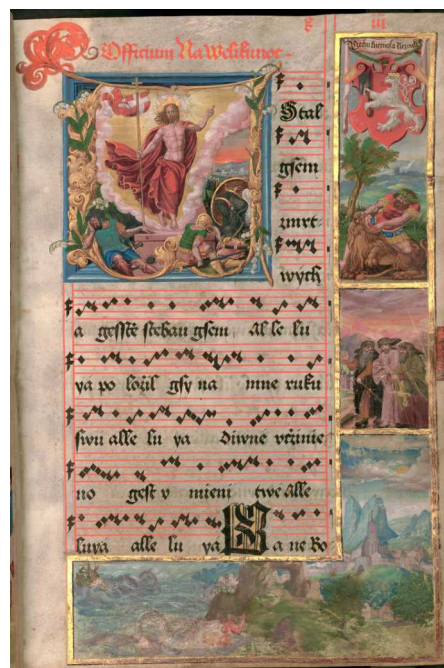 Officium Na Welikunoc-
Stal
gsem
zmrt-
wych
a gesstě stebau gsem Al le lu
ya po ložil gsy na mne ruku
swu alle lu ya Diwne vcžinie
no gest v mieni twe Alle
luya alle lu ya S a ne Bo-